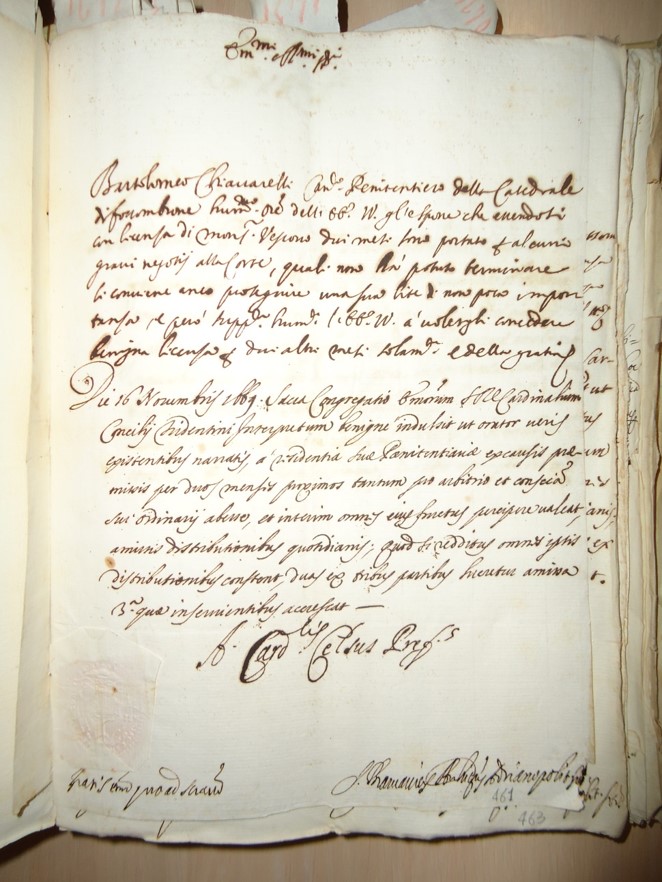 Bartolomeo Chiavarelli Can.co Penitentiero della Catedrale
di fosombrone hum.mo Ore delli EE. VV. gl'espone che avendosi
con licenza di mons.r Vescovo dui mesi sono portato p alcuni
gravi negotij alla Corte, quali non ha potuto terminare
li conviene anco proseguire una sua lite di non poco impor
tanza e però supp.ca hum.te l'EE. VV. à volergli concedere
benigna licenza p dui altri mesi solam.te e della gratia
Die 16 Novembris 1669. Sacra Congregatio Cardinalium
Concilij Tridentini Interpretum benigne indulsit ut orator veris
existentibus narratis, à residentia suae Paenitentiariae ex causis prae-
missis per duos menses proximos tantum pro arbitrio et conscia
sui ordinarij abesse, et interim omnes ejus fructus percipere valeat,
amissis distributionibus quotidianis; quod si redditus omnes istis
distributionibus constent, duas ex tribus partibus lucretur amissa
3.a quae inservientibus accrescat —
A. Card.lis Celsus Pref.s
461
463